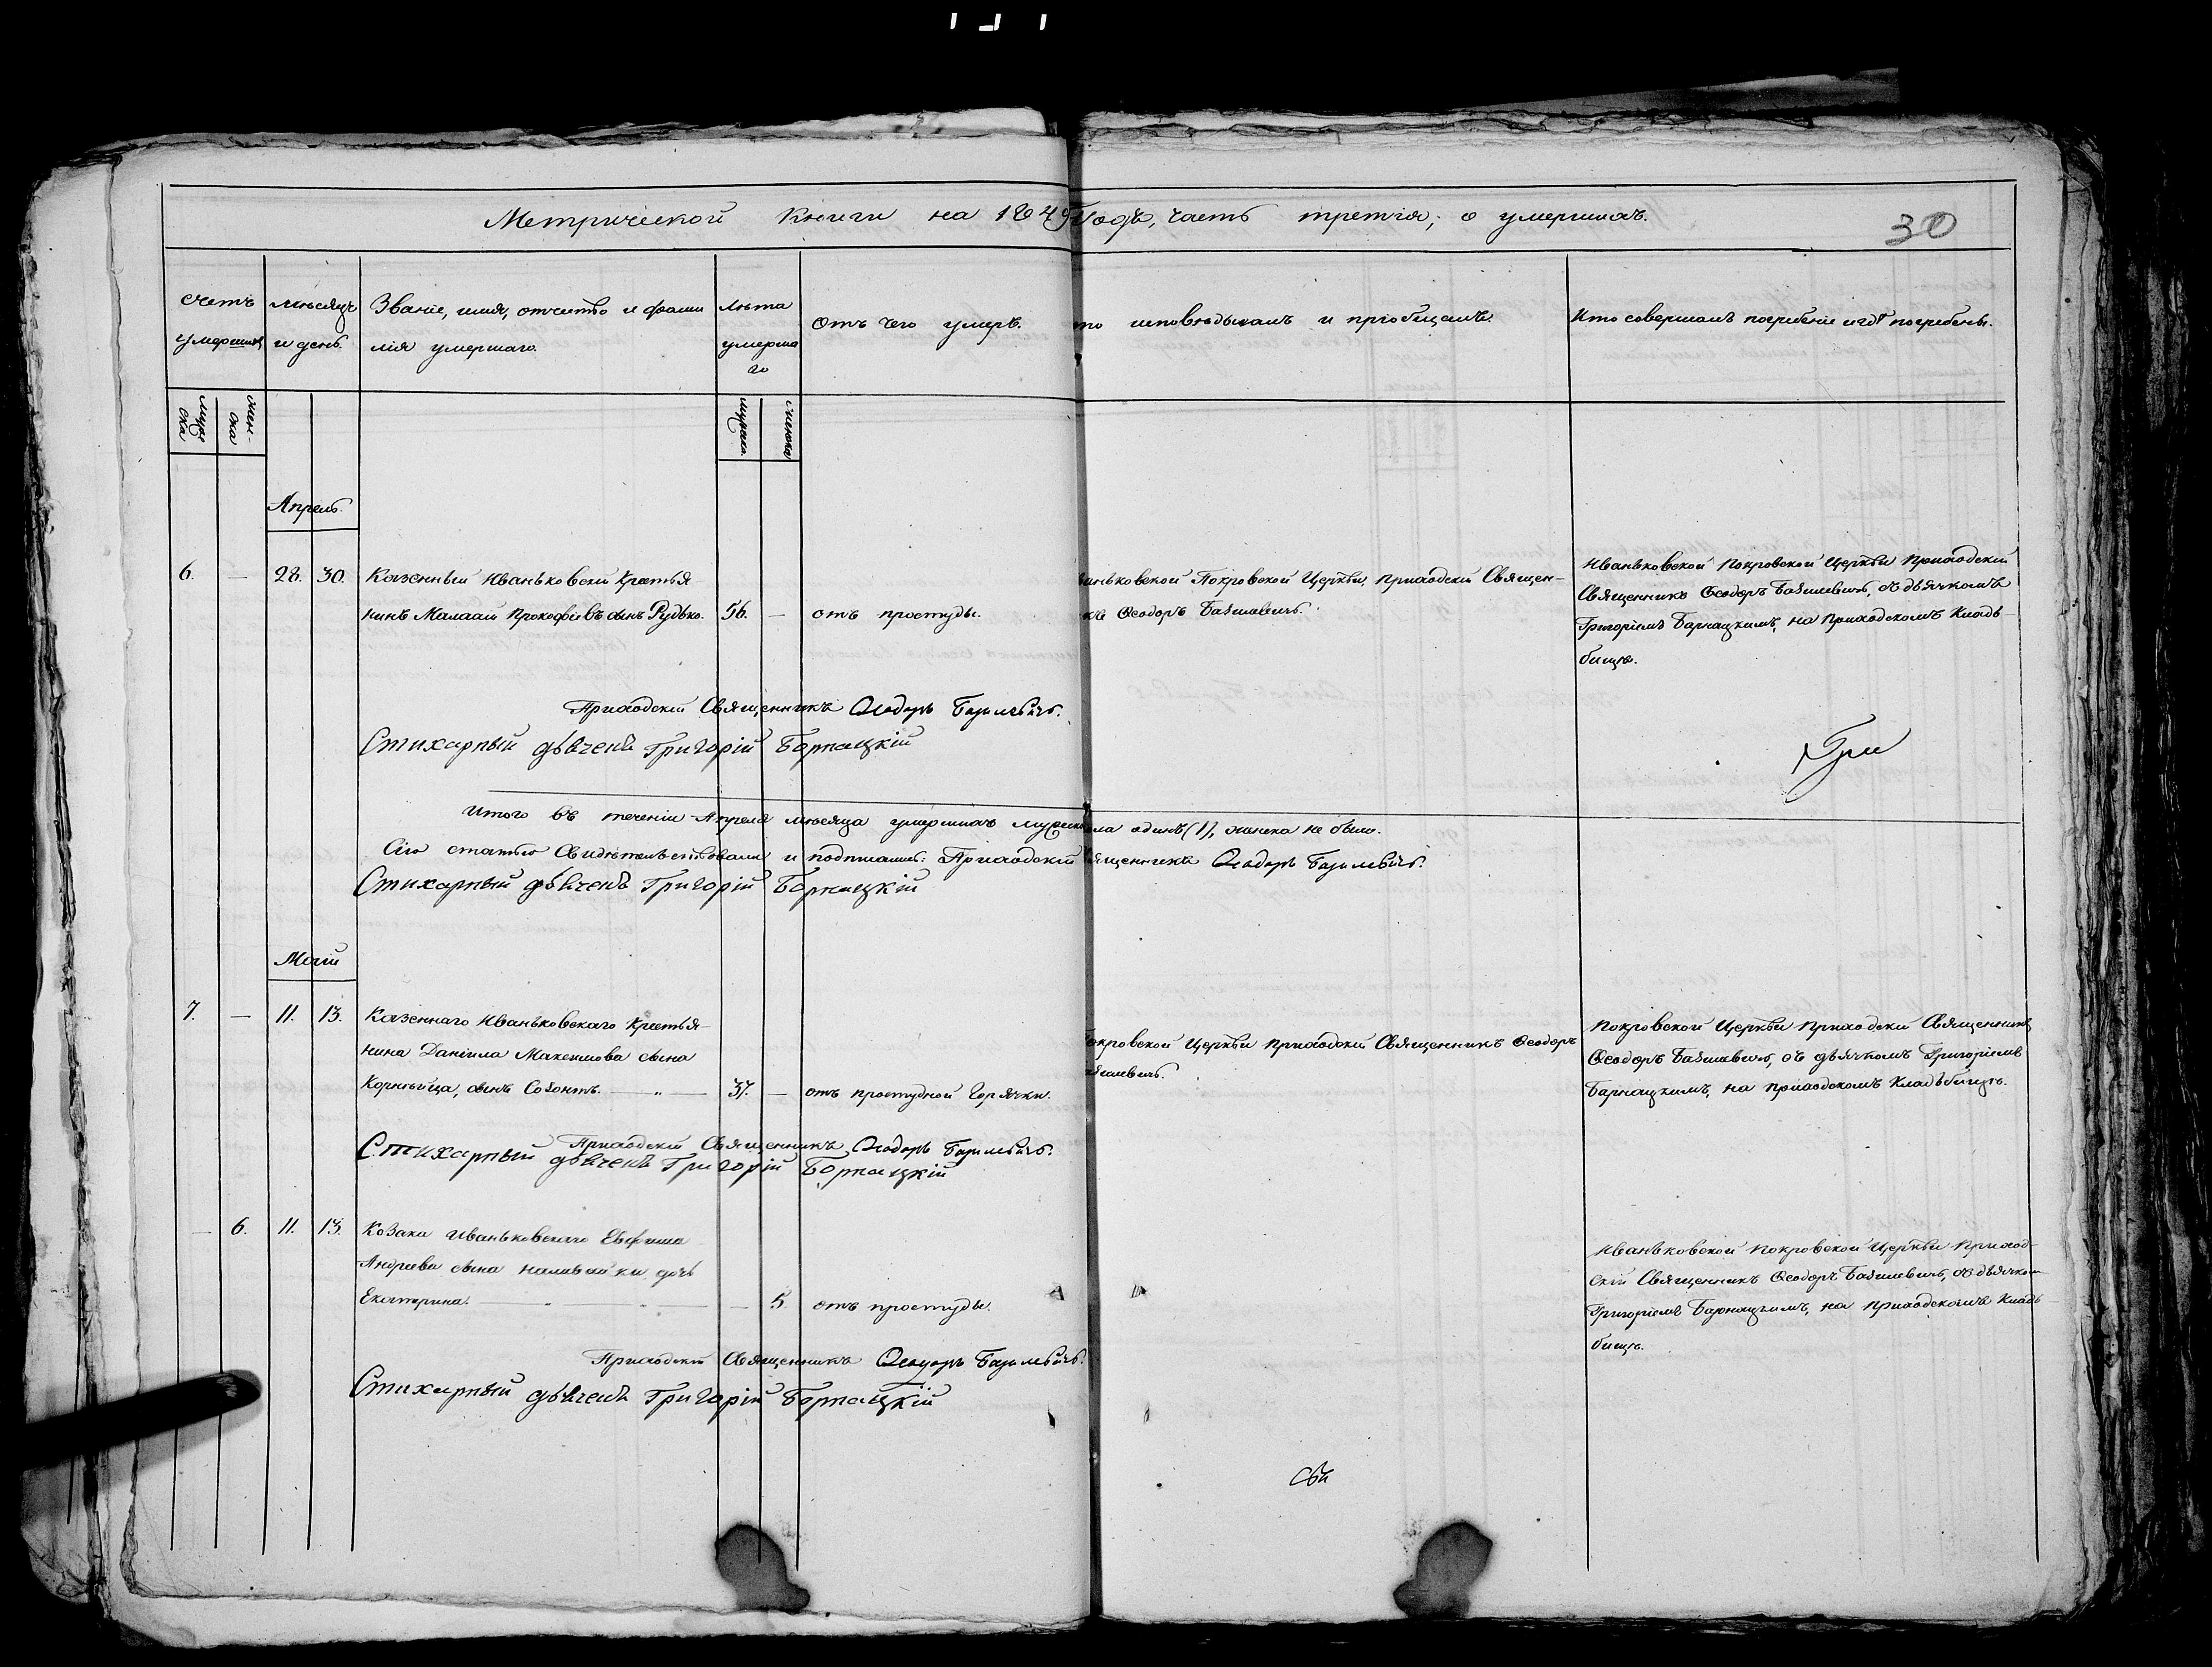 Метрической Книги на 1849 Годъ, часть третія, о умершихъ.
30
Счетъ умершихъ
Мѣсяцъ и день.
Званіе, имя, отчество и фами
лія умершаго.
Лѣта
умерша
го
Отъ чего умеръ.
то исповѣдывалъ и пріобщалъ.
Кто совершалъ погребеніе и гдѣ погребены.
муже
ска
жен-
ска
мужска.
женска
Апрель.
6. — 28. 30. Казенный Иваньковскій Крестья
нинъ Малахій Прокофіевъ сынъ Рудько. 56. — отъ простуды.
аньковской Покровской Церкви, Приходскій Священ-
къ Ѳеодоръ Базилевичъ.
Иваньковской Покровской Церкви Приходскій
Священникъ Ѳеодоръ Базилевичъ, съ дьячкомъ
Григоріемъ Барнацкимъ, на приходскомъ Кладь
бищѣ.
Приходскій Священникъ Ѳеодоръ Базилевичъ.
Стихарный дьячекъ Григорій Борнацкій
Гри
Итого въ теченіи Апреля мѣсяца умершихъ мужеска пола одинъ (1), женска не было.
Сію статью Свидетельствовали и подписали: Приходскій Священникъ Ѳеодоръ Базилевичъ.
Стихарный дьячекъ Григорій Борнацкій
Маій
7. — 11. 13. Казеннаго Иваньковскаго Крестья-
нина Даніила Максимова сына
Корнѣйца, сынъ Созонтъ. — " — 37. — отъ простудной Горячки.
окровской Церкви Приходскій Священникъ Ѳеодоръ
азилевичъ.
Покровской Церкви Приходскій Священникъ
Ѳеодоръ Базилевичъ, съ дьячкомъ Григоріемъ
Барнацкимъ, на приходскомъ Кладьбищѣ.
Приходскій Священникъ Ѳеодоръ Базилевичъ.
Стихарный дьячекъ Григорій Борнацкій
— 6. 11. 13. Козака Иваньковскаго Евфима
Андреева сына дочь
Екатерина. — — 5. отъ простуды.
Иваньковской Покровской Церкви Приход-
скій Священникъ Ѳеодоръ Базилевичъ, съ дьячком
Григоріемъ Барнацкимъ, на приходскомъ Кладь
бищѣ.
Приходскій Священникъ Ѳеодоръ Базилевичъ.
Стихарный дьячекъ Григорій Борнацкій
Сви